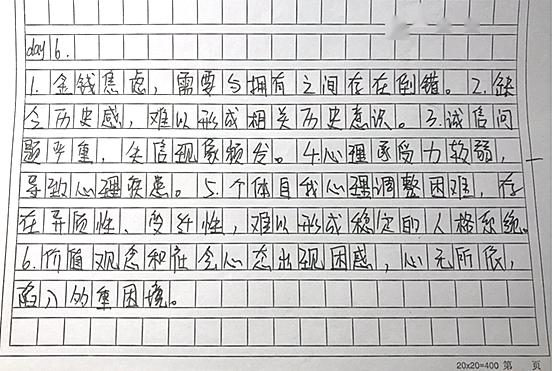 day 6.
1. 金钱焦虑，需要与拥有之间存在倒错。2.缺
令历史感，难以形成相关历史意识。3.诚信问
题严重，失信现象频发。4.心理承受力较弱，
导致心理疾患。5.个体自我心理调整困难，存
在异质性、变纤性，难以形成稳定的人格系统。
6.价值观念和社会心态出现困惑，心无所依，
陷入的重困境。
20x20=400 第 页